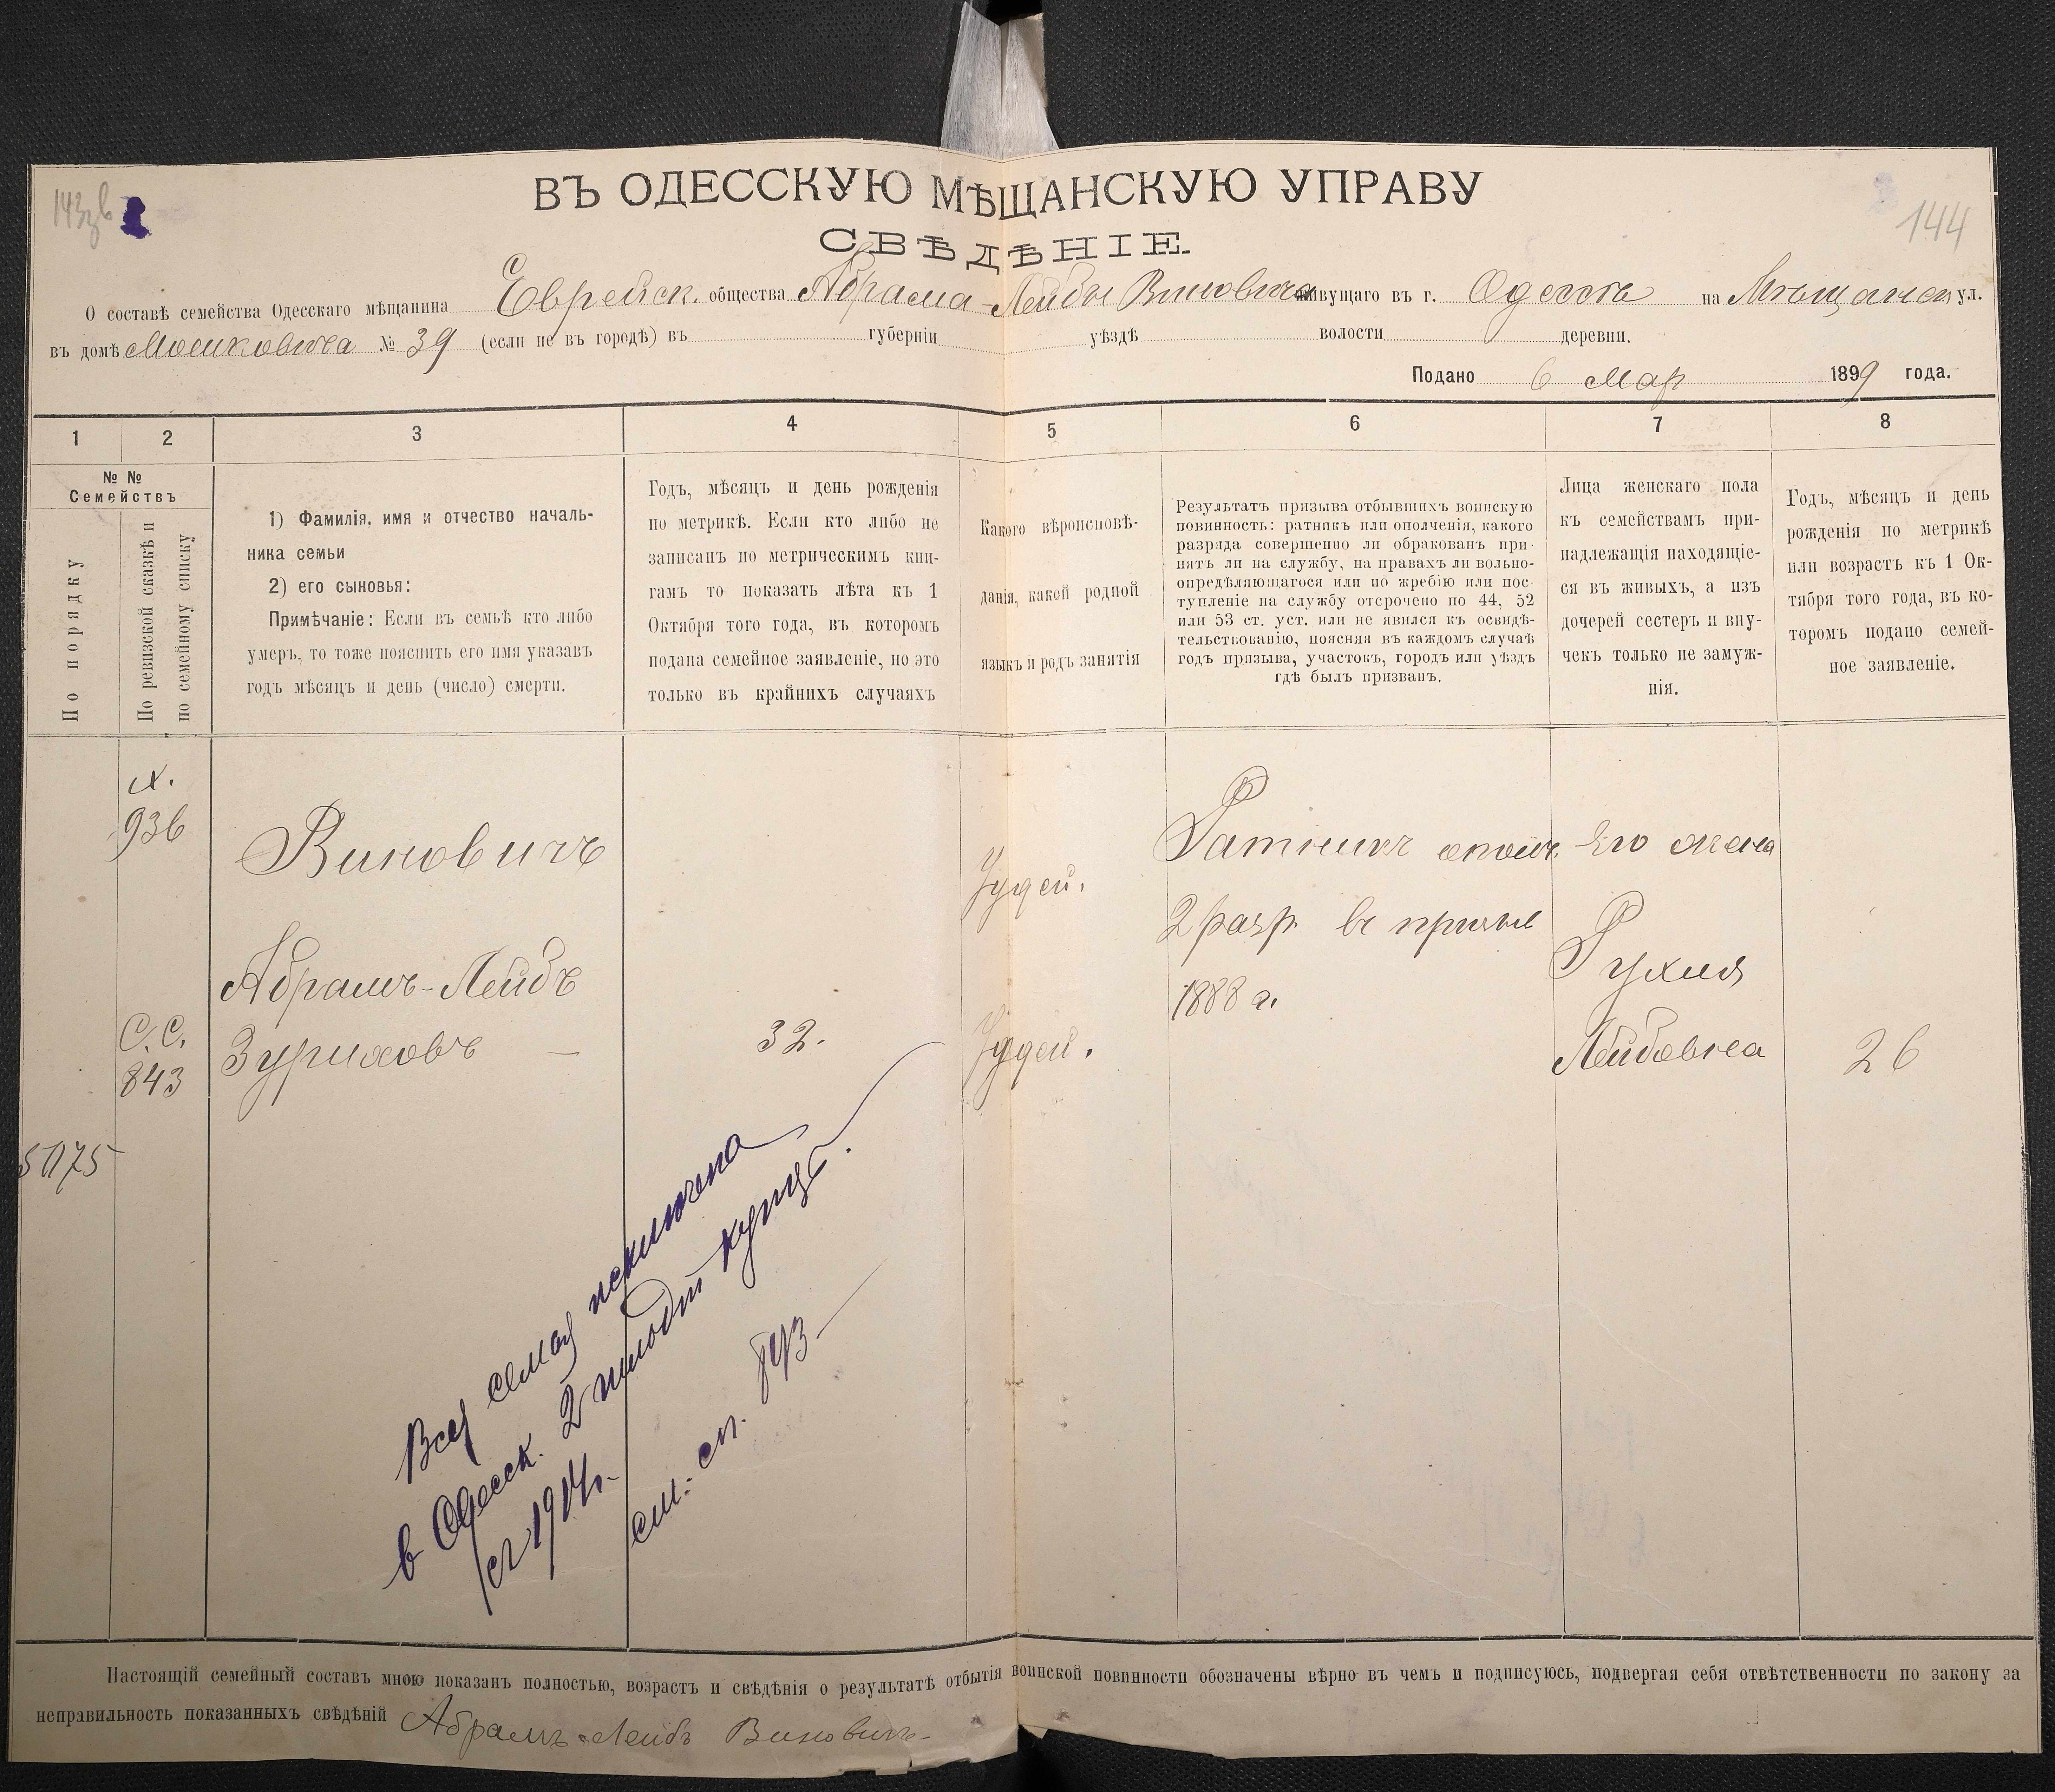 ВЪ ОДЕССКУЮ МѢЩАНСКУЮ УПРАВУ
144
СВѢДѢНІЕ.
О составѣ семейства Одесскаго мѣщанина Еврейск. общества Абрама-Лейбы Виновича живущаго въ г. Одессѣ на Мѣщанск ул.
въ домѣ Мошковича № 39 (если не въ городѣ) въ губерніи уѣздѣ волости деревни.
Подано 6 Мар 1899 года.
1 2 3 4 5 6 7 8
№ №
Семействъ
По порядку
По ревизской сказкѣ и
по семейному списку
1) Фамилія, имя и отчество началь-
ника семьи
2) его сыновья:
Примѣчаніе: Если въ семьѣ кто либо
умеръ, то тоже пояснить его имя указавъ
годъ мѣсяцъ и день (число) смерти.
Годъ, мѣсяцъ и день рожденія
по метрикѣ. Если кто либо не
записанъ по метрическимъ кни-
гамъ то показать лѣта къ 1
Октября того года, въ которомъ
подана семейное заявленіе, но это
только въ крайнихъ случаяхъ
Какого вѣроисповѣ-
данія, какой родной
языкъ и родъ занятія
Результатъ призыва отбывшихъ воинскую
повинность: ратникъ или ополченія, какого
разряда совершенно ли обракованъ при-
нятъ ли на службу, на правахъ ли вольно-
опредѣляющагося или по жребію или пос-
тупленіе на службу отсрочено по 44, 52
или 53 ст. уст. или не явился къ освидѣ-
тельствованію, поясняя въ каждомъ случаѣ
годъ призыва, участокъ, городъ или уѣздъ
гдѣ былъ призванъ.
Лица женскаго пола
къ семействамъ при-
надлежащія находящіе-
ся въ живыхъ, а изъ
дочерей сестеръ и вну-
чекъ только не замуж-
нія.
Годъ, мѣсяцъ и день
рожденія по метрикѣ
или возрастъ къ 1 Ок-
тября того года, въ ко-
торомъ подано семей-
ное заявленіе.
936
Виновичъ
Абрамъ-Лейбъ
С.С. Зурихов 32.
843
Іудей.
Іудей.
Ратникъ ополч.
2 разр. въ призыв
1888 г.
Его жена
Рухля
Лейбовна 26
Вся семья исключена
в Одесск. 2 гильдіи купцы.
съ 1914 г.
см. сп. 843
Настоящій семейный составъ мною показанъ полностью, возрастъ и свѣдѣнія о результатѣ отбытія воинской повинности обозначены вѣрно въ чемъ и подписуюсь, подвергая себя отвѣтственности по закону за
неправильность показанныхъ свѣдѣній Абрамъ-Лейбъ Виновичъ